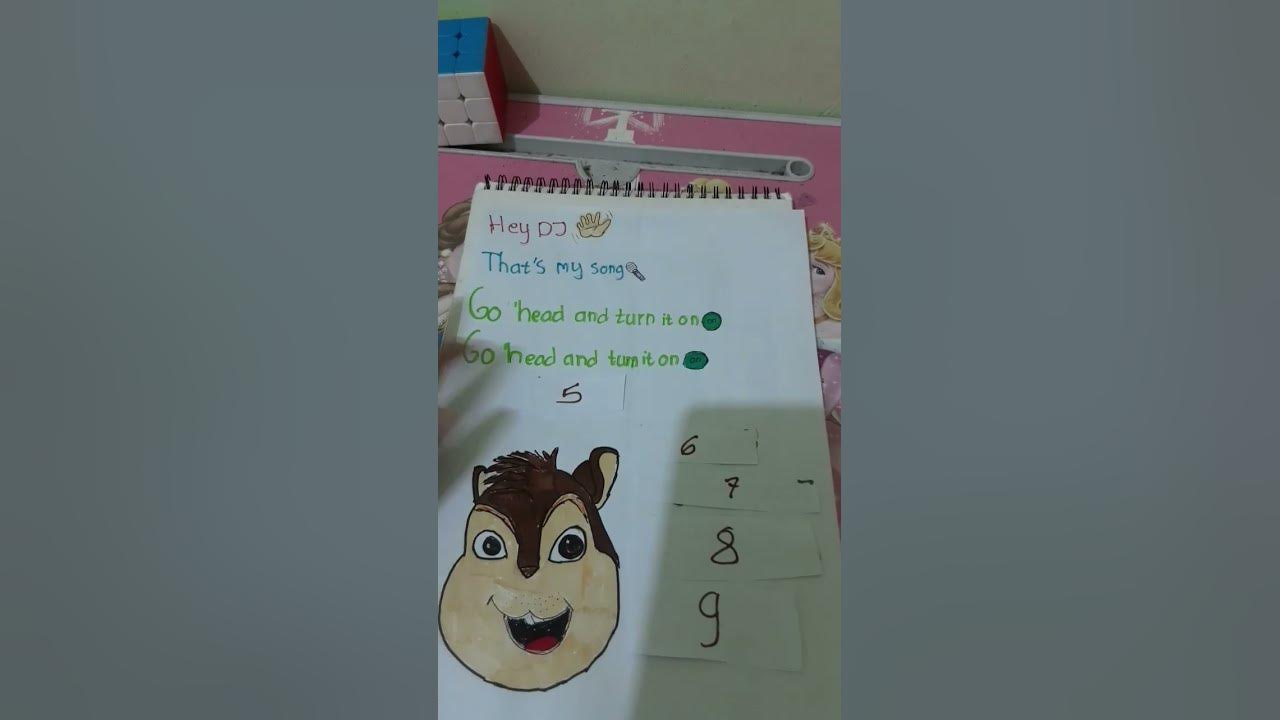 Hey DJ
That's my song
Go 'head and turn it on on
Go 'head and turn it on on
5
6
7
8
9